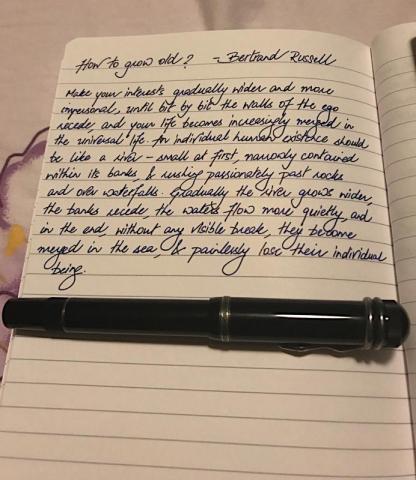 How to grow old? - Bertrand Russell
Make your interests gradually wider and more
impersonal, until bit by bit the walls of the ego
recede, and your life becomes increasingly merged in
the universal life. An individual human existence should
be like a river - small at first, narrowly contained
within its banks, & rushing passionately past rocks
and over waterfalls. Gradually the river grows wider,
the banks recede, the waters flow more quietly, and
in the end, without any visible break, they become
merged in the sea, & painlessly lose their individual
being.